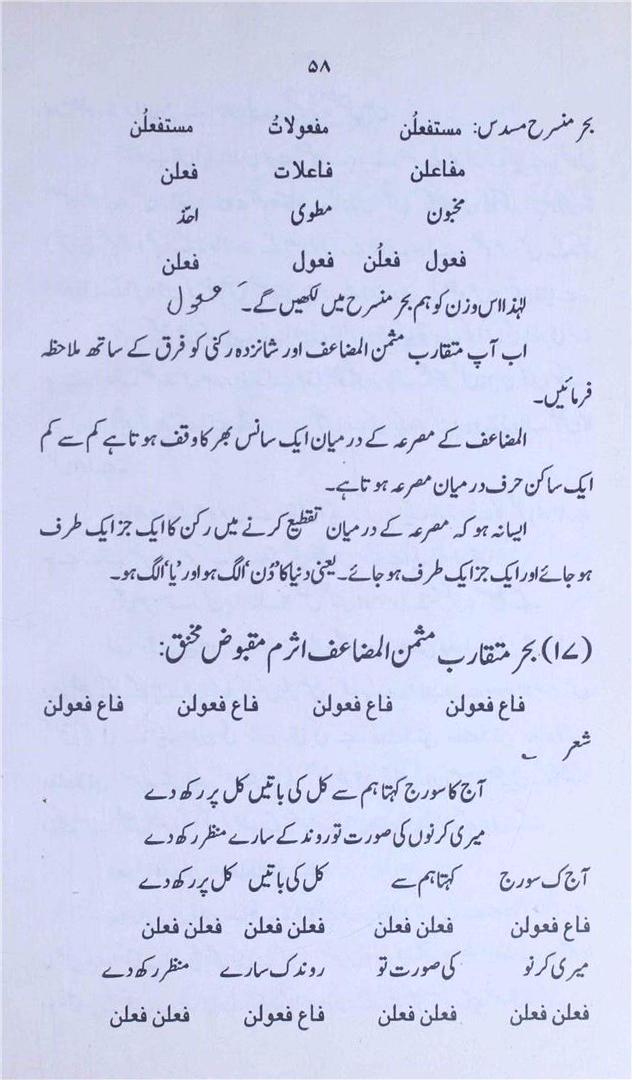 ۵۸
بحر منسرح مسدس: مستفعلُن مفعولاتُ مستفعلُن
مفاعلن فاعلات فعلن
مخبون مطوی احذ
فعول فعلُن فعول فعلن
لہٰذا اس وزن کو ہم بحر منسرح میں لکھیں گے۔
اب آپ متقارب مثمن المضاعف اور شانزدہ رکنی کو فرق کے ساتھ ملاحظہ
فرمائیں۔
المضاعف کے مصرعہ کے درمیان ایک سانس بھر کا وقف ہوتا ہے کم سے کم
ایک ساکن حرف درمیان مصرعہ ہوتا ہے۔
ایسا نہ ہو کہ مصرعہ کے درمیان تقطیع کرنے میں رکن کا ایک جز ایک طرف
ہو جائے اور ایک جز ایک طرف ہو جائے۔ یعنی دنیا کا ’دُن‘ الگ ہو اور ’یا‘ الگ ہو۔
(۱۷) بحر متقارب مثمن المضاعف اثرم مقبوض مخنق:
فاع فعولن فاع فعولن فاع فعولن فاع فعولن
شعر
آج کا سورج کہتا ہم سے کل کی باتیں کل پر رکھ دے
میری کرنوں کی صورت تو روند کے سارے منظر رکھ دے
آج ک سورج کہتا ہم سے کل کی باتیں کل پر رکھ دے
فاع فعولن فعلن فعلن فعلن فعلن فعلن فعلن
میری کرنو کی صورت تو روند ک سارے منظر رکھ دے
فعلن فعلن فعلن فعلن فاع فعولن فعلن فعلن